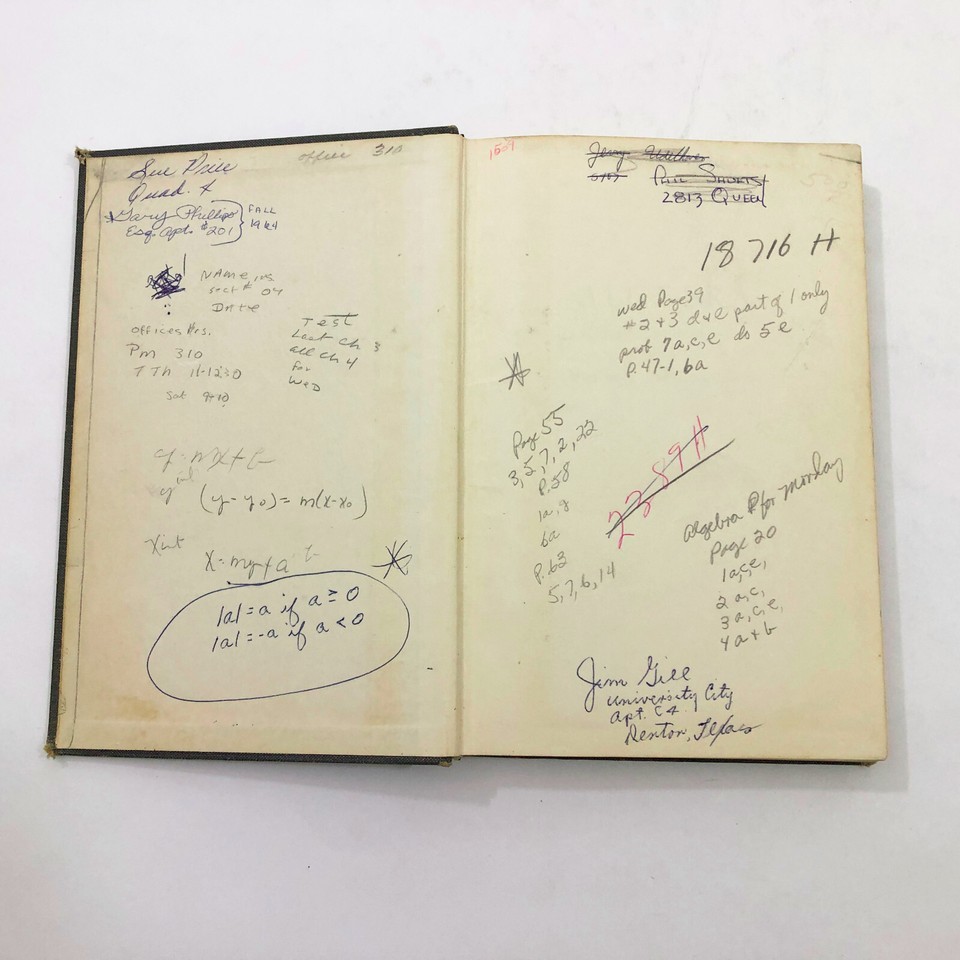 office 310
Sue Price
Quad. 4
Gary Phillips FALL
Esq. Apt. #201 1964
NAME, rs
sect # 04
Date
Offices Hrs.
Pm 310
T Th 11-1230
Sat 9-10
Test
Last ch 3
all ch 4
for
Wed
y = mx + b
y int
(y - y0) = m(x - x0)
X int
X = my + a
|a| = a if a ≥ 0
|a| = -a if a < 0
1509
Jerry
Phil Shurtst
2813 Queen
18716 H
wed Page 39
#2 + 3 d+e part of 1 only
prob 7a,c,e do 5e
P. 47-1, 6a
Page 55
3, 5, 7, 2, 22
P. 58
1a, 8
6a
P. 62
5, 7, 6, 14
2389 H
Algebra P for Monday
Page 20
1a,c,e,
2 a,c,
3 a,c,e,
4 a + b
Jim Gill
University City
Apt. C4
Denton, Texas